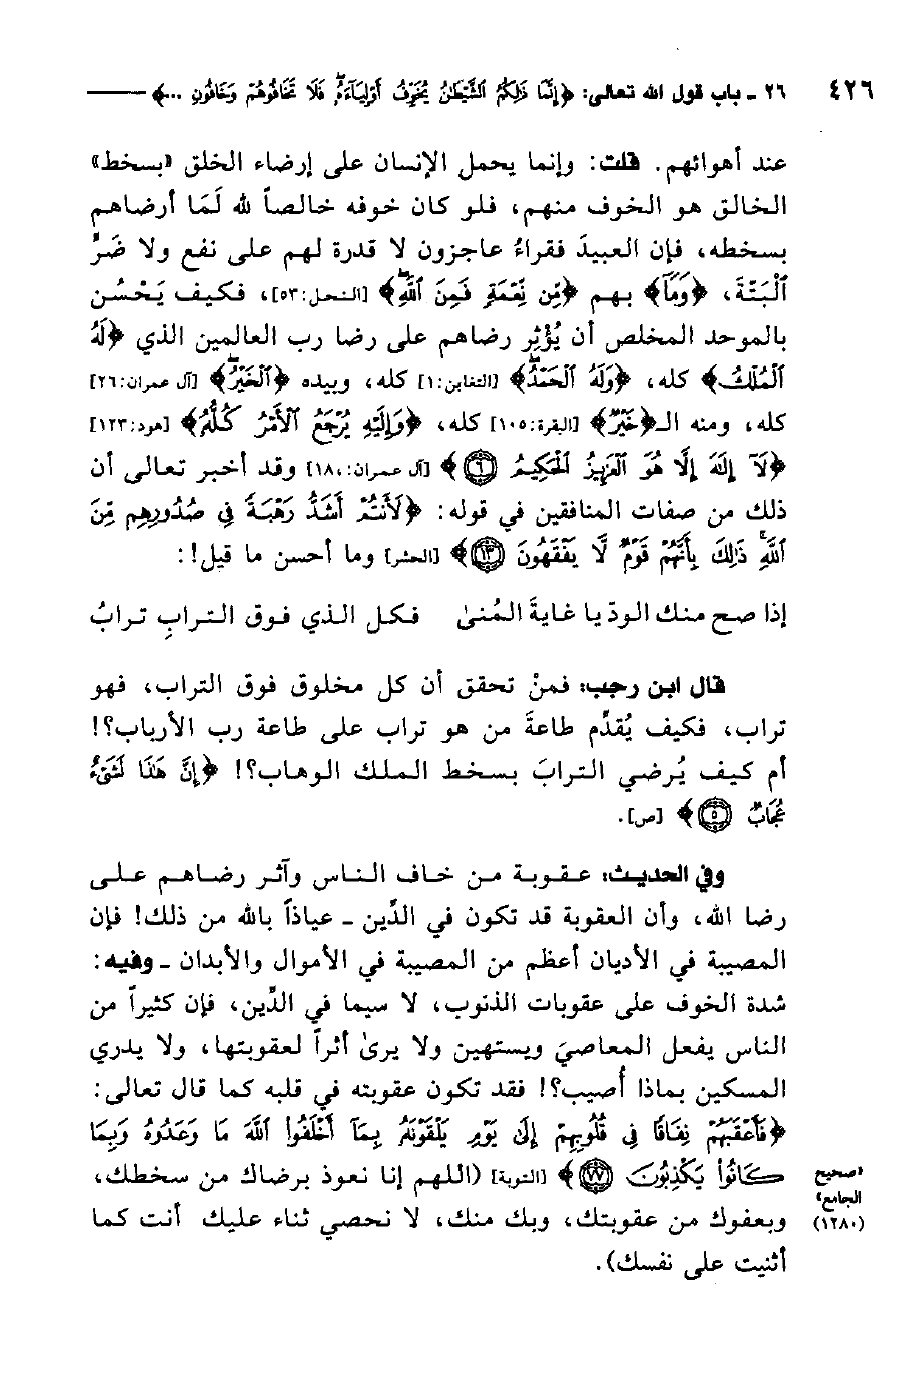 ٤٢٦ ٢٦ ـ باب قول الله تعالى: ﴿إِنَّمَا ذَٰلِكُمُ ٱلشَّيْطَٰنُ يُخَوِّفُ أَوْلِيَآءَهُۥ فَلَا تَخَافُوهُمْ وَخَافُونِ ...﴾
عند أهوائهم. قلت: وإنما يحمل الإنسان على إرضاء الخلق «بسخط»
الخالق هو الخوف منهم، فلو كان خوفه خالصاً لله لَمَا أرضاهم
بسخطه، فإن العبيدَ فقراءُ عاجزون لا قدرة لهم على نفع ولا ضَرٍّ
ٱلْبَتَّةَ، ﴿وَمَآ﴾ بهم ﴿مِّن نِّعْمَةٍ فَمِنَ ٱللَّهِۖ﴾ [النحل:٥٣]، فكيف يَحْسُن
بالموحد المخلص أن يُؤْثِر رضاهم على رضا رب العالمين الذي ﴿لَهُ
ٱلْمُلْكُ﴾ كله، ﴿وَلَهُ ٱلْحَمْدُۖ﴾ [التغابن:١] كله، وبيده ﴿ٱلْخَيْرُۖ﴾ [آل عمران:٢٦]
كله، ومنه الـ﴿خَيْرٌۖ﴾ [البقرة:١٠٥] كله، ﴿وَإِلَيْهِ يُرْجَعُ ٱلْأَمْرُ كُلُّهُۥ﴾ [هود:١٢٣]
﴿لَآ إِلَٰهَ إِلَّا هُوَ ٱلْعَزِيزُ ٱلْحَكِيمُ ۝٦﴾ [آل عمران:١٨٠] وقد أخبر تعالى أن
ذلك من صفات المنافقين في قوله: ﴿لَأَنتُمْ أَشَدُّ رَهْبَةً فِى صُدُورِهِم مِّنَ
ٱللَّهِۚ ذَٰلِكَ بِأَنَّهُمْ قَوْمٌ لَّا يَفْقَهُونَ ۝١٣﴾ [الحشر] وما أحسن ما قيل!:
إذا صح منك الودّ يا غايةَ المُنىٰ فكل الذي فوق الترابِ ترابُ
قال ابن رجب: فمنْ تحقق أن كل مخلوق فوق التراب، فهو
تراب، فكيف يُقدِّم طاعةَ من هو تراب على طاعة رب الأرباب؟!
أم كيف يُرضي الترابَ بسخط الملك الوهاب؟! ﴿إِنَّ هَٰذَا لَشَىْءٌ
عُجَابٌ ۝٥﴾ [ص].
وفي الحديث: عقوبة من خاف الناس وآثر رضاهم على
رضا الله، وأن العقوبة قد تكون في الدِّين ـ عياذاً بالله من ذلك! فإن
المصيبة في الأديان أعظم من المصيبة في الأموال والأبدان ـ وفيه:
شدة الخوف على عقوبات الذنوب، لا سيما في الدِّين، فإن كثيراً من
الناس يفعل المعاصيَ ويستهين ولا يرىٰ أثراً لعقوبتها، ولا يدري
المسكين بماذا أُصيب؟! فقد تكون عقوبته في قلبه كما قال تعالى:
﴿فَأَعْقَبَهُمْ نِفَاقًا فِى قُلُوبِهِمْ إِلَىٰ يَوْمِ يَلْقَوْنَهُۥ بِمَآ أَخْلَفُوا۟ ٱللَّهَ مَا وَعَدُوهُ وَبِمَا
كَانُوا۟ يَكْذِبُونَ ۝٧٧﴾ [التوبة] (اللهم إنا نعوذ برضاك من سخطك،
وبعفوك من عقوبتك، وبك منك، لا نحصي ثناء عليك أنت كما
أثنيت على نفسك).
«صحيح
الجامع»
(١٢٨٠)